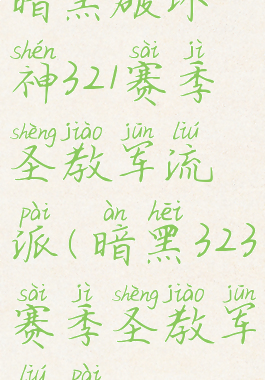 暗黑破坏
shén sài jì
神321赛季
shèng jiào jūn liú
圣教军流
pài àn hēi
派(暗黑323
sài jì shèng jiào jūn
赛季圣教军
liú pài